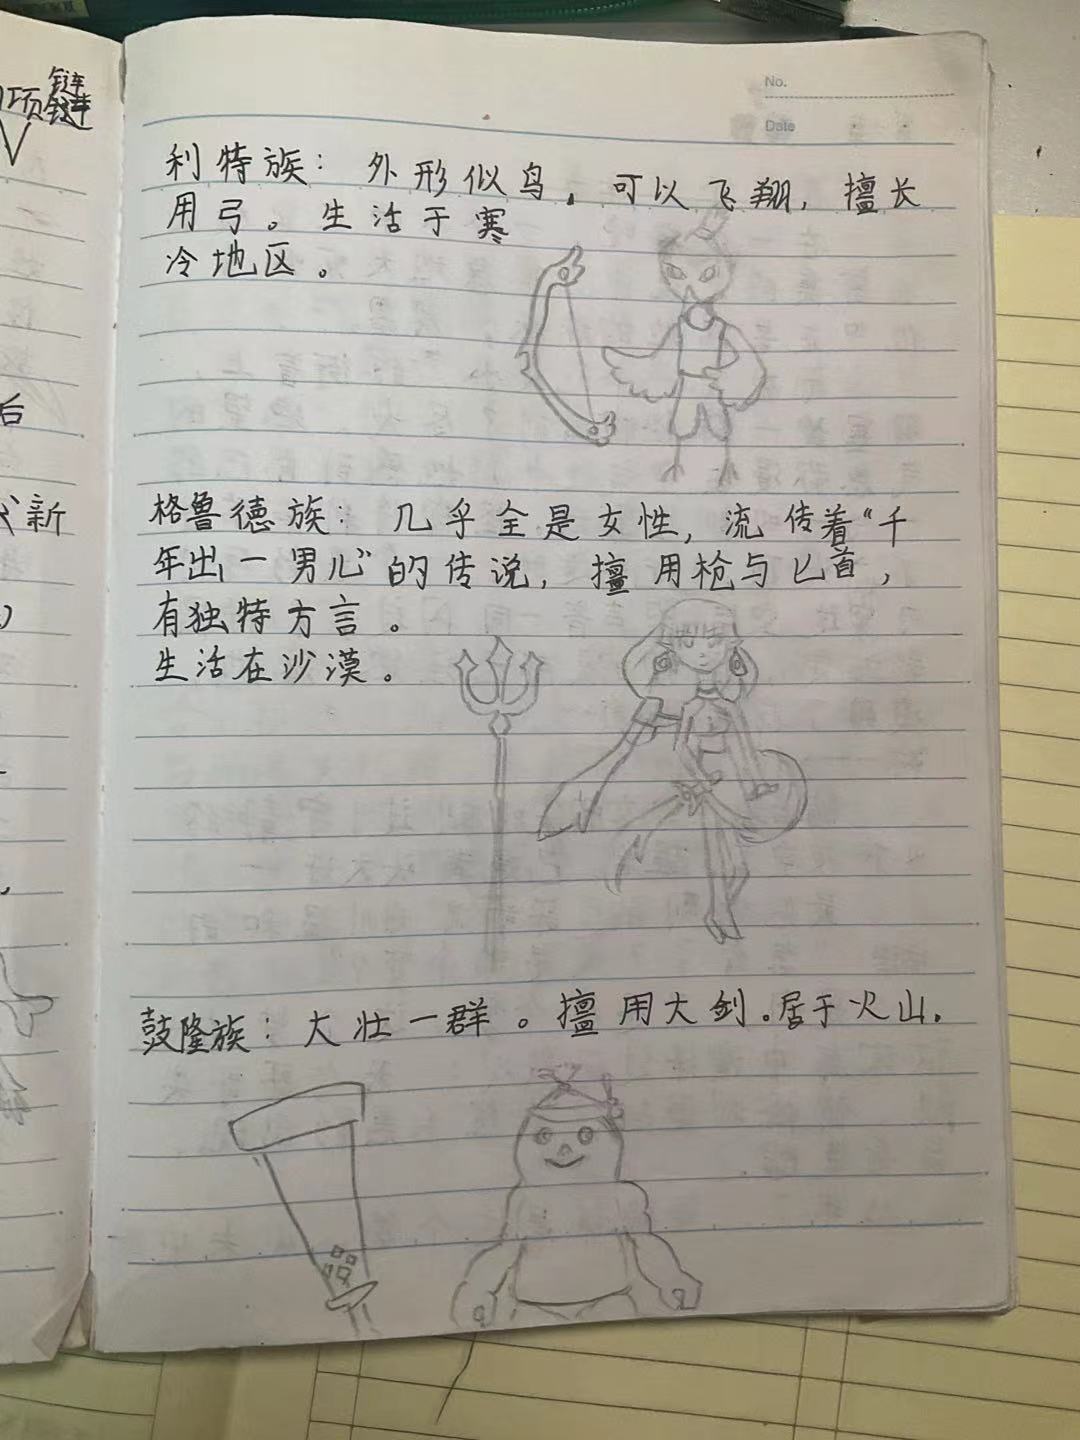 项链
链
后
新
No.
Date
利特族：外形似鸟，可以飞翔，擅长
用弓。生活于寒
冷地区。
格鲁德族：几乎全是女性，流传着“千
年出一男儿”的传说，擅用枪与匕首，
有独特方言。
生活在沙漠。
鼓隆族：大壮一群。擅用大剑。居于火山.